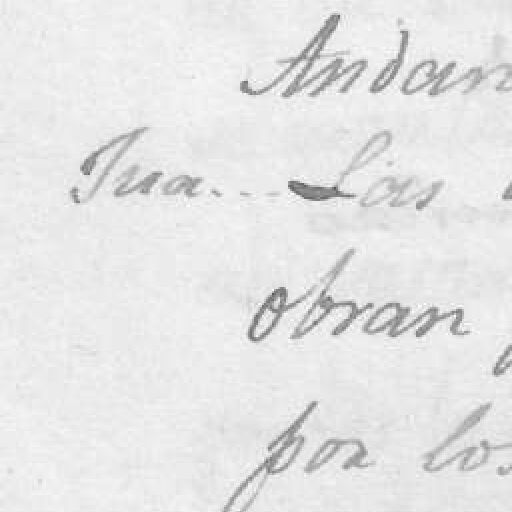 Andan
Jua... Las
obran
por los